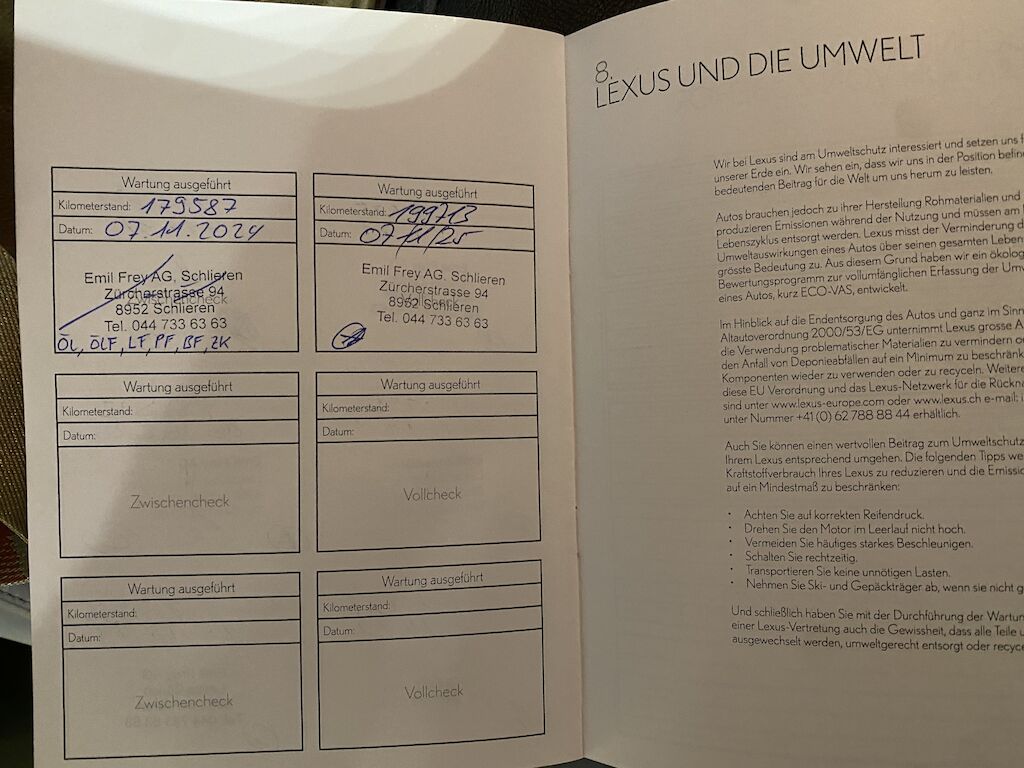 Wartung ausgeführt
Kilometerstand: 179587
Datum: 07.11.2024
Emil Frey AG, Schlieren
Zürcherstrasse 94
Zwischencheck
8952 Schlieren
Tel. 044 733 63 63
ÖL, ÖLF, LF, PF, BF, ZK
Wartung ausgeführt
Kilometerstand: 199713
Datum: 07/11/25
Emil Frey AG, Schlieren
Zürcherstrasse 94
8952 Schlieren
Tel. 044 733 63 63
Wartung ausgeführt
Kilometerstand:
Datum:
Zwischencheck
Wartung ausgeführt
Kilometerstand:
Datum:
Vollcheck
Wartung ausgeführt
Kilometerstand:
Datum:
Zwischencheck
Wartung ausgeführt
Kilometerstand:
Datum:
Vollcheck
8.
LEXUS UND DIE UMWELT
Wir bei Lexus sind am Umweltschutz interessiert und setzen uns
unserer Erde ein. Wir sehen ein, dass wir uns in der Position
bedeutenden Beitrag für die Welt um uns herum zu leisten.
Autos brauchen jedoch zu ihrer Herstellung Rohmaterialien und
produzieren Emissionen während der Nutzung und müssen am
Lebenszyklus entsorgt werden. Lexus misst der Verminderung
Umweltauswirkungen eines Autos über seinen gesamten
grösste Bedeutung zu. Aus diesem Grund haben wir ein
Bewertungsprogramm zur vollumfänglichen Erfassung der
eines Autos, kurz ECO-VAS, entwickelt.
Im Hinblick auf die Endentsorgung des Autos und ganz im
Altautoverordnung 2000/53/EG unternimmt Lexus grosse
die Verwendung problematischer Materialien zu vermindern
den Anfall von Deponieabfällen auf ein Minimum zu
Komponenten wieder zu verwenden oder zu recyceln. Weitere
diese EU Verordnung und das Lexus-Netzwerk für die
sind unter www.lexus-europe.com oder www.lexus.ch e-mail:
unter Nummer +41 (0) 62 788 88 44 erhältlich.
Auch Sie können einen wertvollen Beitrag zum Umweltschutz
Ihrem Lexus entsprechend umgehen. Die folgenden Tipps
Kraftstoffverbrauch Ihres Lexus zu reduzieren und die
auf ein Mindestmaß zu beschränken:
• Achten Sie auf korrekten Reifendruck.
• Drehen Sie den Motor im Leerlauf nicht hoch.
• Vermeiden Sie häufiges starkes Beschleunigen.
• Schalten Sie rechtzeitig.
• Transportieren Sie keine unnötigen Lasten.
• Nehmen Sie Ski- und Gepäckträger ab, wenn sie nicht
Und schließlich haben Sie mit der Durchführung der
einer Lexus-Vertretung auch die Gewissheit, dass alle Teile
ausgewechselt werden, umweltgerecht entsorgt oder